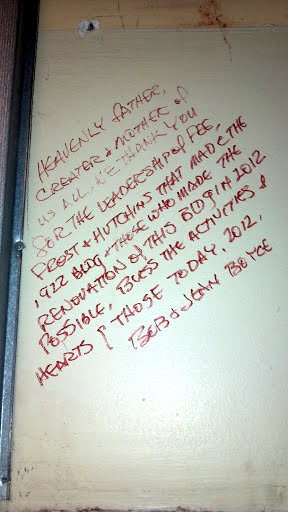 HEAVENLY FATHER,
CREATER & MOTHER OF
US ALL. WE THANK YOU
FOR THE LEADERSHIP OF FEE,
PROST & HUTCHINS THAT MADE THE
1922 BLDG & THOSE WHO MADE THE
RENOVATION OF THIS BLDG IN 2012
POSSIBLE. BLESS THE ACTIVITIES &
HEARTS OF THOSE TODAY, 2012.
BOB & JEAN BOYCE